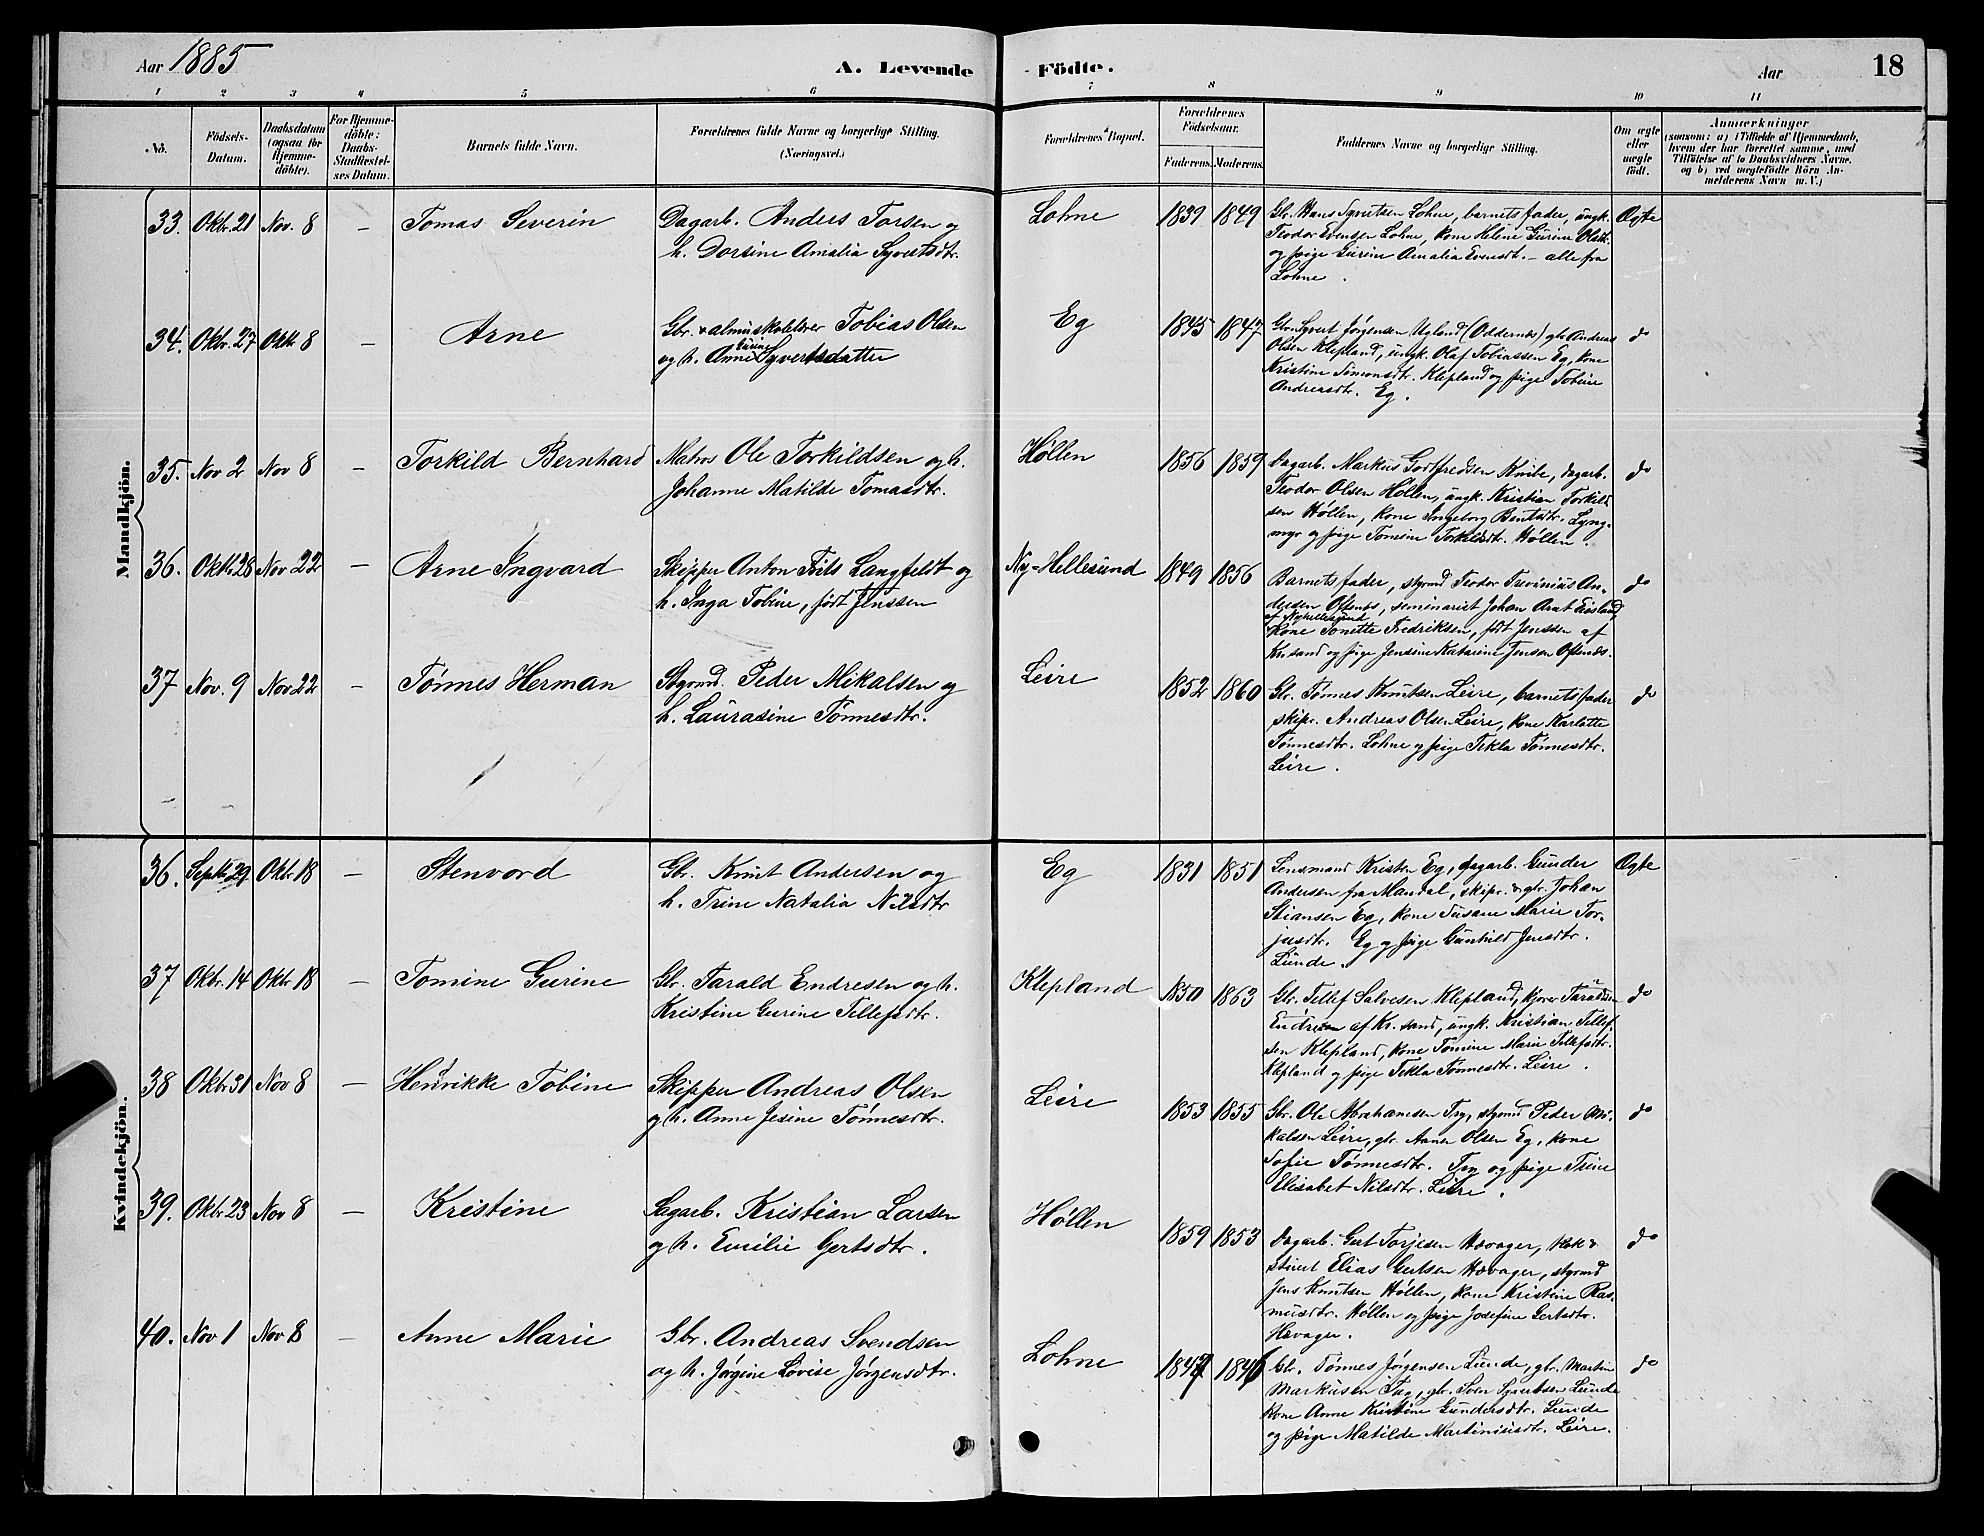 Aar 1885
A. Levende
Födte.
Aar
18
1 2 3 4 5 6 7 8 9 10 11
No.
Födsels-
Datum.
Daabsdatum
(ogsaa for
Hjemme-
döbte).
For Hjemme-
döbte:
Daabs-
Stadfæstel-
ses Datum.
Barnets fulde Navn.
Forældrenes fulde Navne og borgerlige Stilling.
(Næringsvei.)
Forældrenes Bopæl.
Forældrenes
Födselsaar.
Faderens. Moderens.
Faddernes Navne og borgerlige Stilling.
Om ægte
eller
uægte
födt.
Anmærkninger
(saasom: a) i Tilfælde af Hjemmedaab,
hvem der har forrettet samme, med
Tilföielse af to Daabsvidners Navne.
og b) ved uægtefödte Börn An-
melderens Navn m. V.)
Mandkjön.
33. Okbr. 21 Nov. 8 – Tomas Severin
Dagarb. Anders Torsen og
h. Dorsine Amalia Syvertsdtr.
Lohne 1839 1849
Gbr. Hans Syvertsen Lohne, barnets fader, ungk.
Teodor Evensen Lohne, kone Helene Gurine Olsdtr.
og pige Gurine Amalia Evensdtr. – alle fra
Lohne.
Ægte
34. Okbr. 27 Okbr 8 – Arne
Gbr. & almuskolelærer Tobias Olsen
og h. Anne Gurine Syvertsdatter
Eg 1845 1847
Gbr. Syvert Jørgensen Ugland (Oddernæs) gbr Andreas
Olsen Klepland, ungk. Olaf Tobiassen Eg, kone
Kristine Simonsdtr. Klepland og pige Tobine
Andreasdtr. Eg.
do
35. Nov 2 Nov 8 – Torkild Bernhard
Matros Ole Torkildsen og h.
Johanne Matilde Tomasdtr.
Høllen 1856 1859
Dagarb. Markus Godtfredsen Knibe, dagarb.
Teodor Olsen Høllen, ungk. Kristian Torkild
sen Høllen, kone Ingeborg Bentsdtr. Lyng-
myr og pige Tomine Torkildsdtr. Høllen.
do
36. Oktbr 28 Nov 22 – Arne Ingvard
Skipper Anton Frits Langfeldt og
h. Inga Tobine, født Jenssen
Ny-Hellesund 1849 1856
Barnets fader, styrmd Teodor Trevinius An-
dersen Oftenæs, seminariet Johan Arnt Eivsland
af Nyhellesund
kone Tonette Fredriksen, født Jenssen af
Krisand og pige Jensine Katarine Jensen Oftenæs.
do
37 Nov. 9 Nov 22 – Tønnes Herman
Styrmd. Peder Mikalsen og
h. Laurasine Tønnesdtr.
Leire 1852 1860
Gbr. Tønnes Knutsen Leire, barnets fader
skipr. Andreas Olsen Leire, kone Karlotte
Tønnesdtr. Lohne og pige Tekla Tønnesdtr.
Leire.
do
Kvindekjön.
36. Septb 29 Okbr. 18 – Stenvord
Gbr. Knut Andersen og
h. Trine Natalia Nilsdtr
Eg 1831 1851
Lensmand Kristen Eg, dagarb. Gunder
Andersen fra Mandal, skipr. & gbr. Johan
Stiansen Eg, kone Susane Marie Tor-
jusdtr. Eg og pige Gunhild Jensdtr.
Lunde.
Ægte
37 Okbr. 14 Okbr 18 – Tomine Gurine
Gbr. Tarald Endresen og h.
Kristine Gurine Tellefsdtr.
Klepland 1850 1863
Gbr. Tellef Salvesen Klepland, kjører Taraldsen
Endresen af Kr. sand, ungk. Kristian Tellef-
sen Klepland, kone Tomine Marie Tellefsdtr.
Klepland og pige Tekla Tønnesdtr. Leire.
do
38 Okbr. 31 Nov 8 – Henrikke Tobine
Skipper Andreas Olsen
og h. Anne Jesine Tønnesdtr.
Leire 1853 1855
Gbr. Ole Abrahamsen Try, styrmd Peder Mi-
kalsen Leire, gbr. Aanen Olsen Eg, kone
Sofie Tønnesdtr. Try og pige Trine
Elisabet Nilsdtr. Leire.
do
39. Okbr. 23 Nov 8 – Kristine
Dagarb. Kristian Larsen
og h. Emilie Gertsdtr.
Høllen 1859 1853
Dagarb. Gert Torjesen Hævager, kok &
stuert Elias Gertsen Hævager, styrmd
Jens Knutsen Høllen, kone Kristine Ras-
musdtr. Høllen og pige Josefine Gertsdtr.
Hævager.
do
40. Nov 1 Nov 8 – Anne Marie
Gbr. Andreas Svendsen
og h. Jørgine Lovise Jørgensdtr.
Lohne 1847 1846
Gbr. Tønnes Jørgensen Lunde, gbr. Martin
Markusen Tag, gbr. Sven Syvertsen Lunde
kone Anne Kristine Gundersdtr. Lunde
og pige Matilde Martiniusdtr. Leire.
do